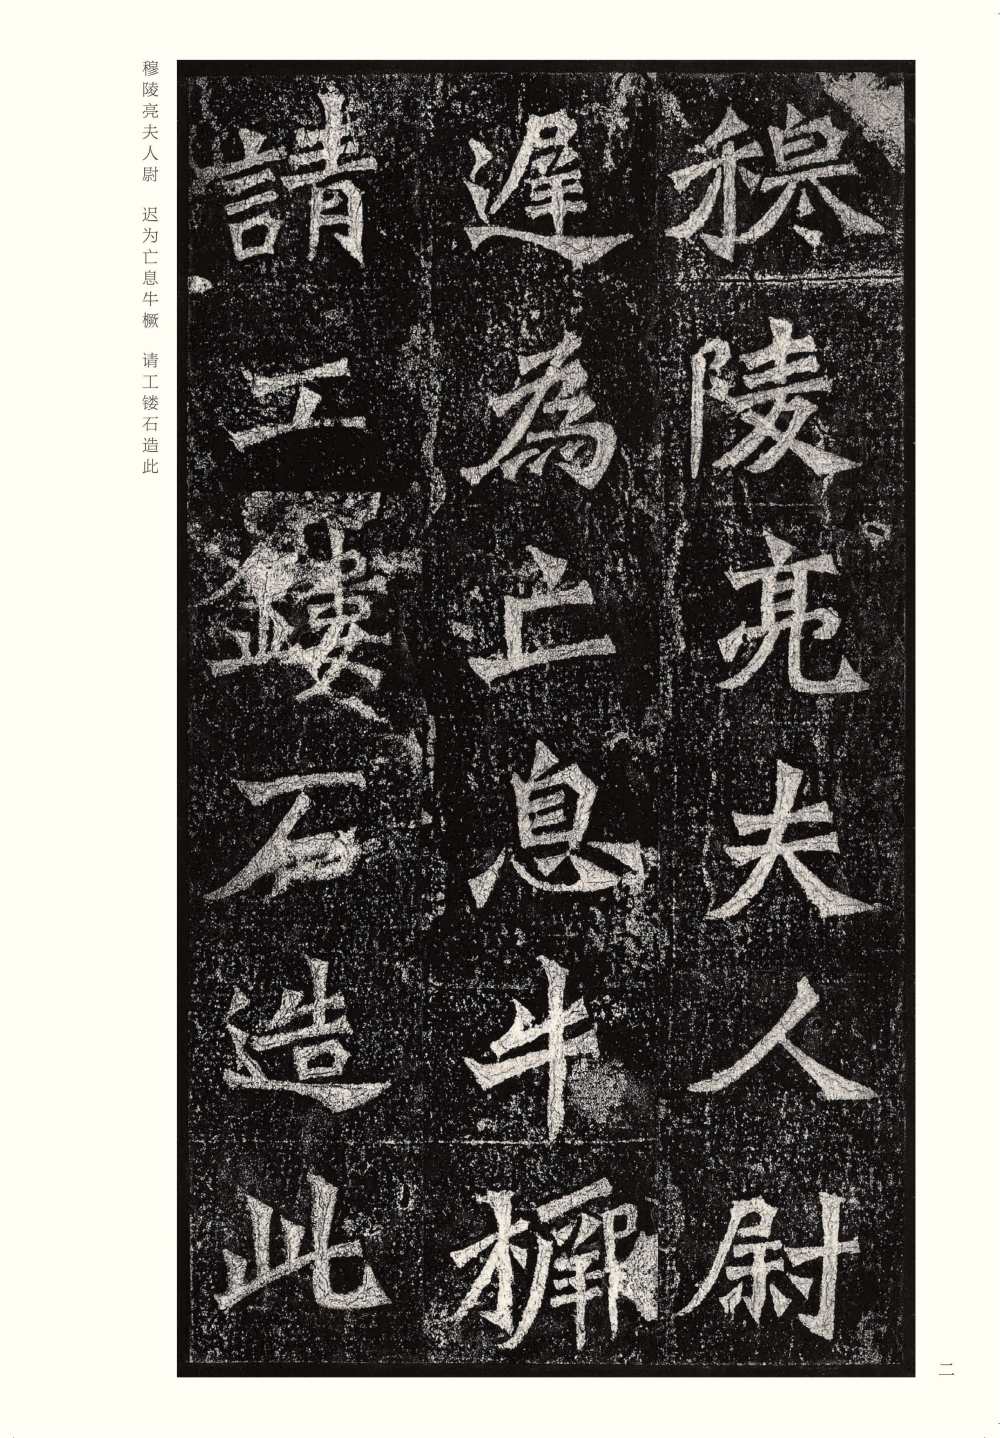 穆陵亮夫人尉
遲為亡息牛橛
請工鏤石造此
穆陵亮夫人尉　迟为亡息牛橛　请工镂石造此
二